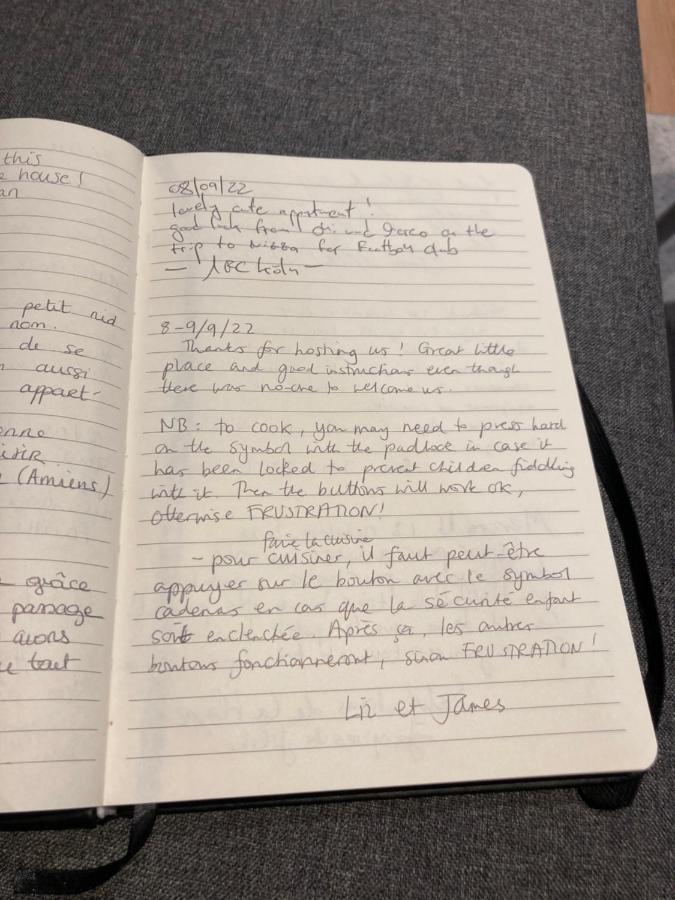 this
house!
an
petit nid
nom.
de se
aussi
appart-
(Amiens)
grâce
passage
avons
tout
08/09/22
lovely cute appartment!
good luck from and on the
trip to for club
8-9/9/22
Thanks for hosting us! Great little
place and good instructions even though
there was no-one to welcome us.
NB: to cook, you may need to press hard
on the symbol with the padlock in case it
has been locked to prevent children fiddling
with it. Then the buttons will work ok,
otherwise FRUSTRATION!
faire la cuisine
- pour cuisiner, il faut peut-être
appuyer sur le bouton avec le symbol
cadenas en cas que la sécurité enfant
soit enclenchée. Après ça, les autres
boutons fonctionneront, sinon FRUSTRATION!
Liz et James